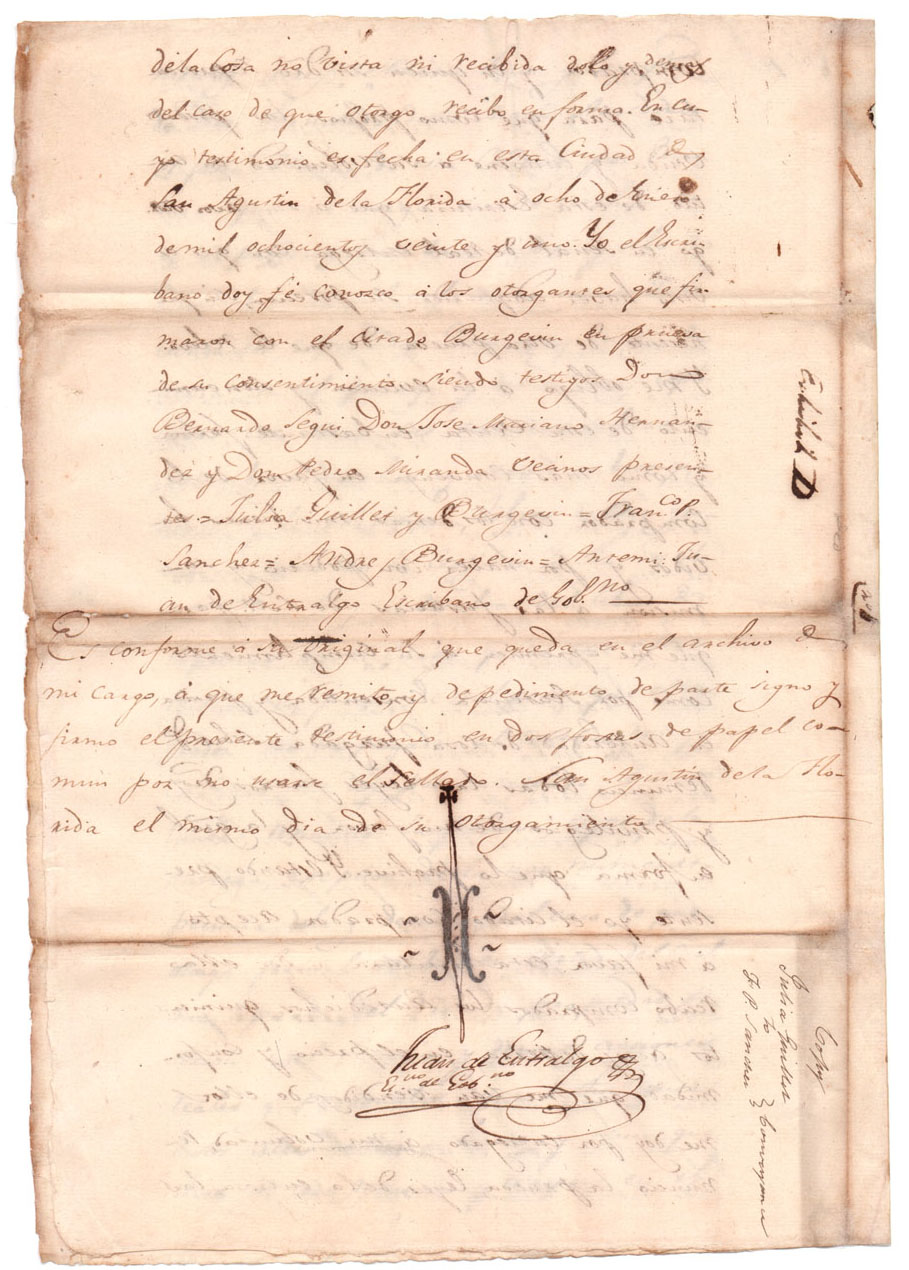 de la Cosa no vista ni recibida dolo y demas
del caso de que otorgo recibo en forma. En cu-
yo testimonio es fecha en esta Ciudad de
San Agustin de la Florida á ocho de Enero
de mil ochocientos veinte y uno. Yo el Escri-
bano doy fé conozco á los otorgantes que fir-
maron con el citado Burgevin en prueva
de su consentimiento siendo testigos Don
Bernardo Segui Don Jose Mariano Hernan-
dez y Don Pedro Miranda vecinos presen-
tes = Julia Guillet y Burgevin = Fran.co P.
Sanchez = Andres Burgevin = Ante mi: Ju-
an de Entralgo Escribano de Gob.no
Es conforme á su original que queda en el archivo de
mi cargo, á que me remito, y de pedimento de parte signo y
firmo el presente testimonio en dos fosas de papel co-
mun por no usarse el Sellado. San Agustin de la Flo-
rida el mismo dia de su otorgamiento
Juan de Entralgo
E.no de Gob.no
Exhibit D
Copy
Julia Guillet
to
F. P. Sanchez
Conveyance